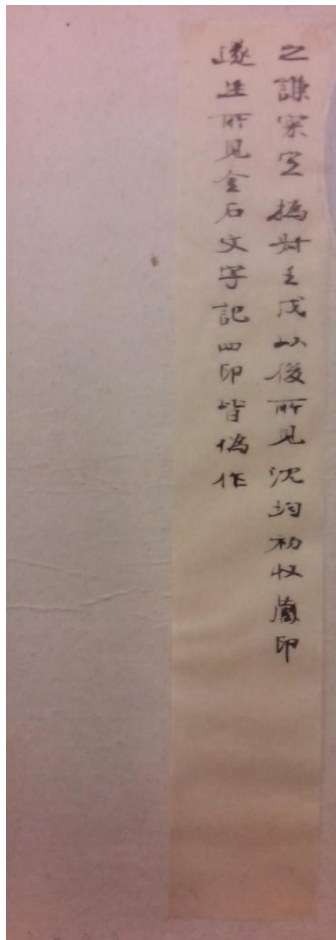 之謙宷定撝叔壬戌以後所見沈均初收藏印
遂生所見金石文字記四印皆偽作